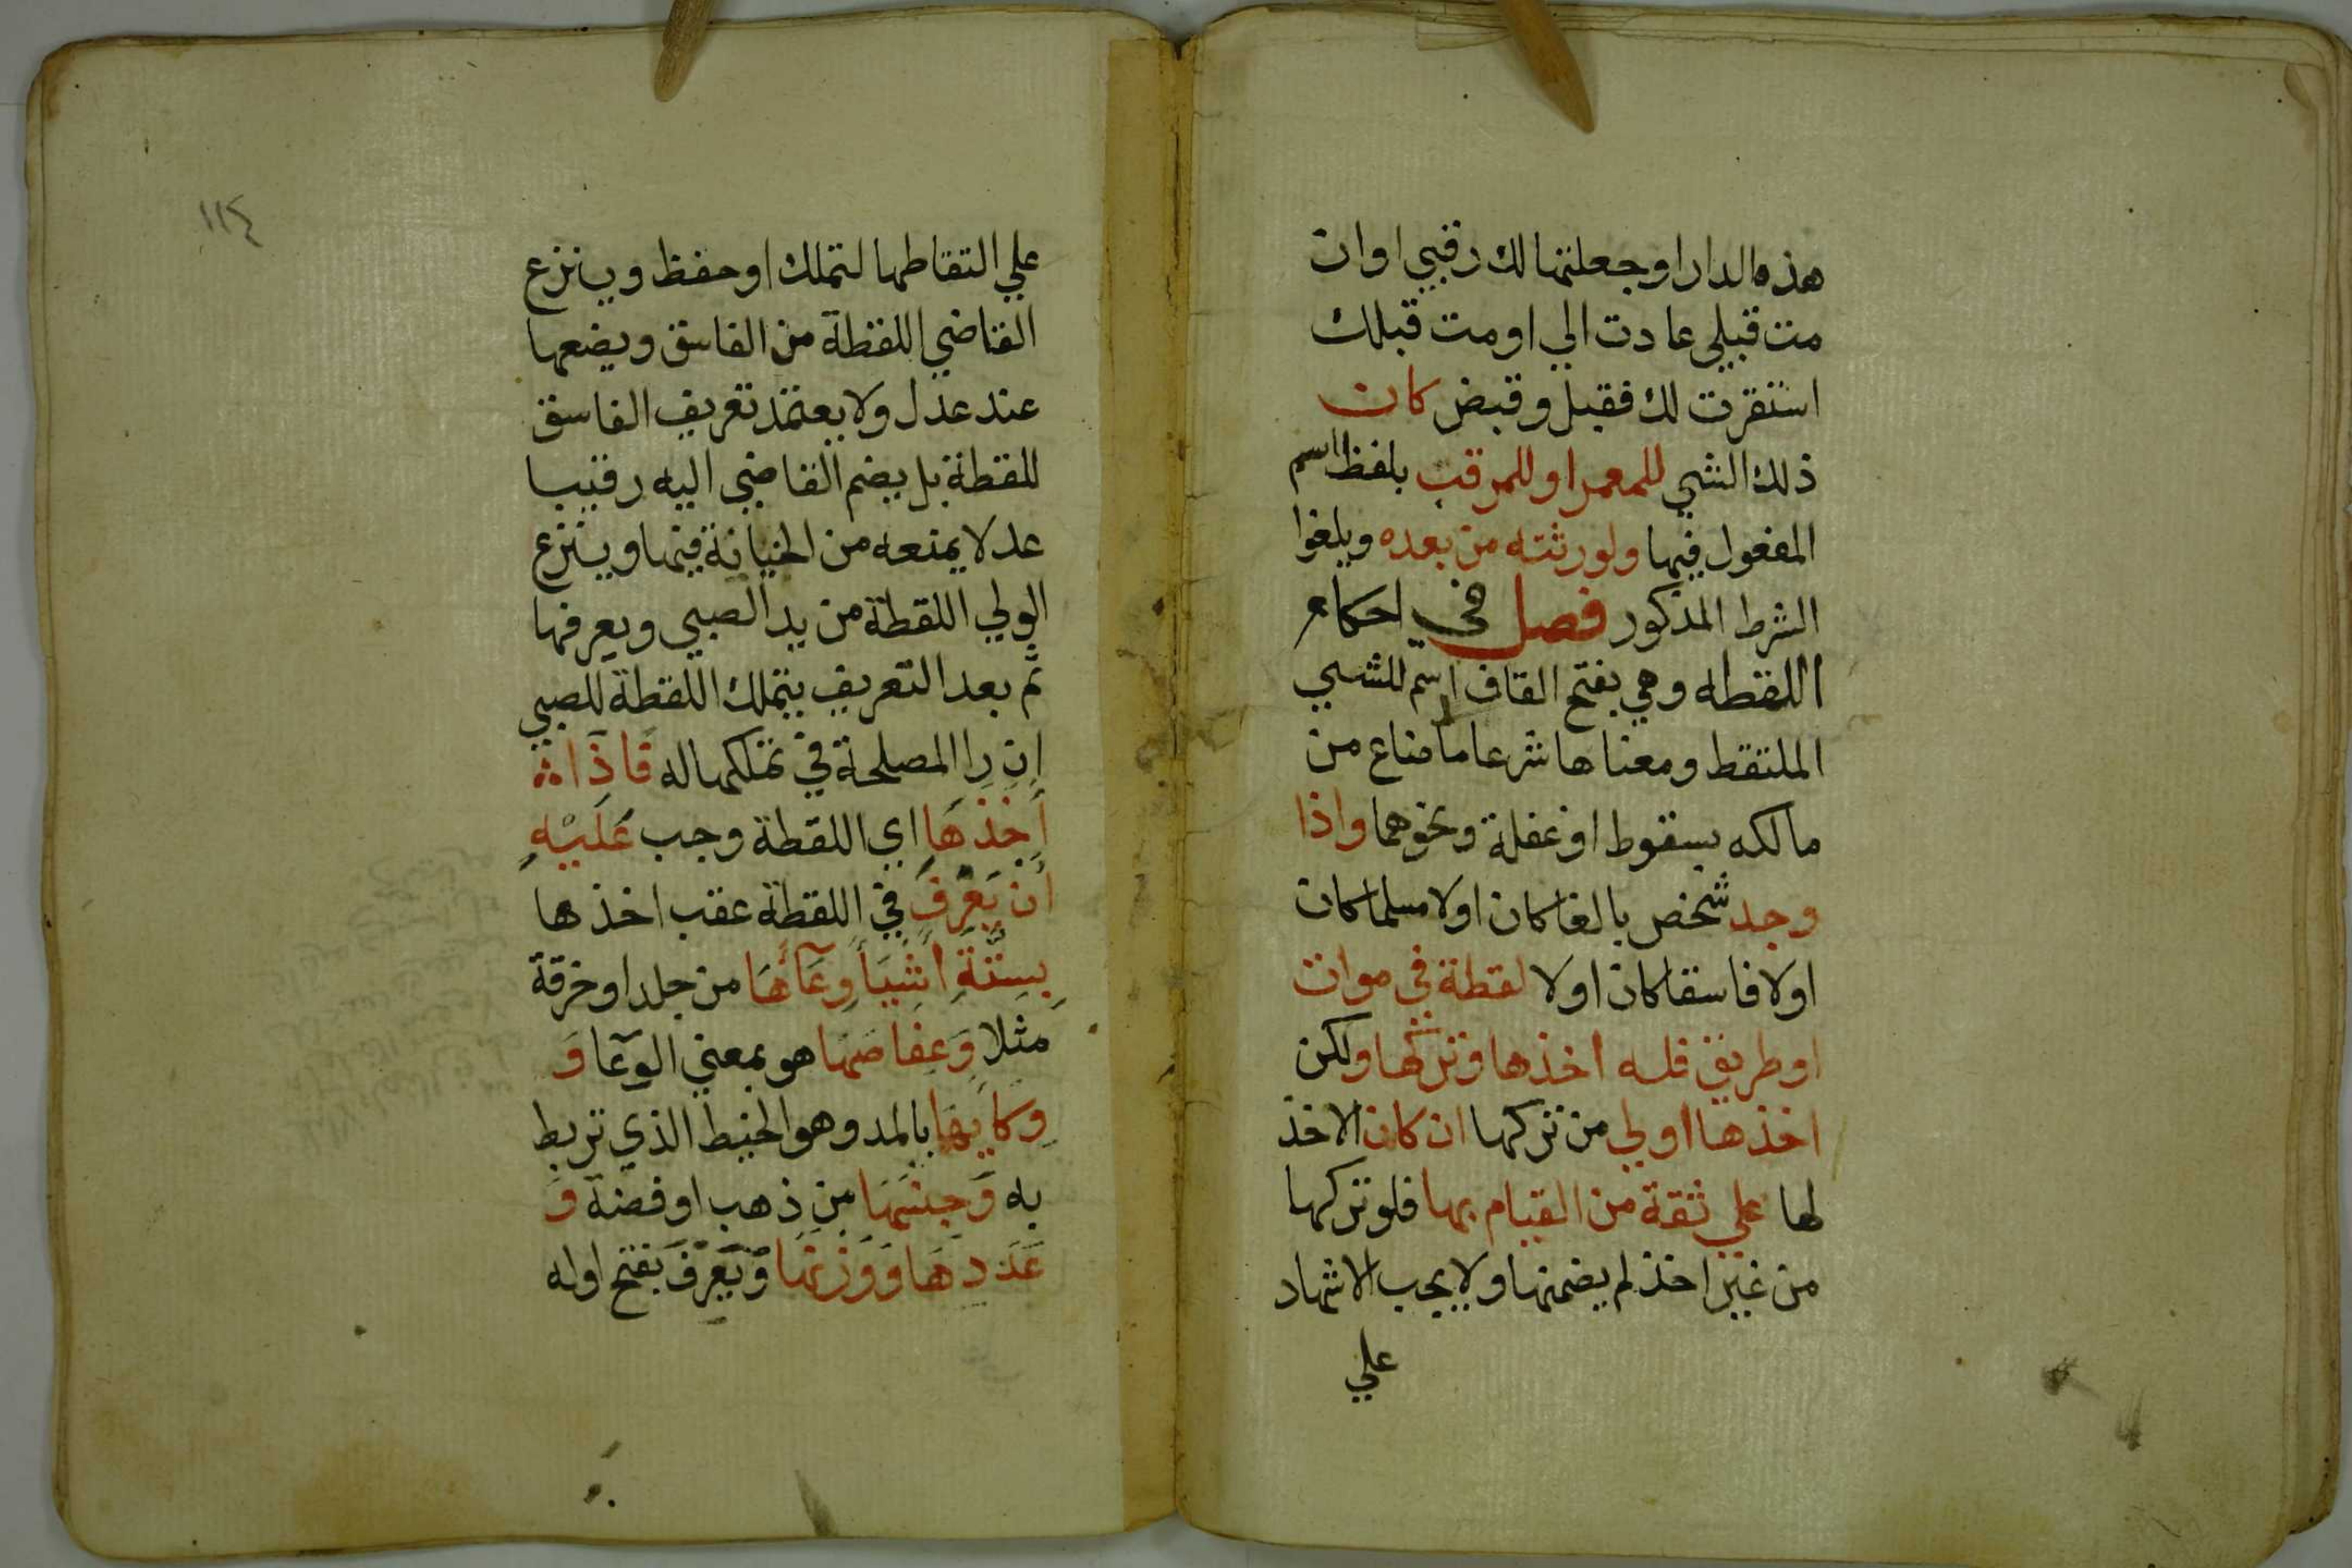 هذه الدار او جعلتها لك رقبي اوان
مت قبلي عادت الي او مت قبلك
استقرت لك فقبل وقبض كان
ذلك الشي للمعمر او للمرقب بلفظ اسم
المفعول فيها ولورثته من بعده ويلغوا
الشرط المذكور فصل في احكام
اللقطه وهي بفتح القاف اسم للشي
الملتقط ومعناها شرعا ما ضاع من
مالكه بسقوط او غفلة ونحوهما واذا
وجد شخص بالغا كان اولا مسلما كان
اولا فاسقا كان اولا لقطة في موات
او طريق فله اخذها وتركها ولكن
اخذها اولي من تركها ان كان الاخذ
لها علي ثقة من القيام بها فلو تركها
من غير اخذ لم يضمنها ولا يجب الاشهاد
علي
١١٤
علي التقاطها لتملك او حفظ وينزع
القاضي اللقطة من الفاسق ويضعها
عند عدل ولا يعتمد تعريف الفاسق
للقطة بل يضم القاضي اليه رقيبا
عدلا يمنعه من الخيانة فيها وينزع
الولي اللقطة من يد الصبي ويعرفها
ثم بعد التعريف يتملك اللقطة للصبي
ان را المصلحة في تملكها له فَاذَا
أَخَذَهَا اي اللقطة وجب عَلَيْهِ
أَن يَعْرِفَ في اللقطة عقب اخذها
بِسِتَّةِ اَشْيَأَ وِعَآئَهَا من جلد او خرقة
مثلا وَعِفَاصَهَا هو بمعني الوعا وَ
وِكَايِهَا بالمد وهو الخيط الذي تربط
به وَجِنْسَهَا من ذهب او فضة وَ
عَدَدِهَا وَوَزْنِهَا وَيَعْرِفَ بفتح اوله